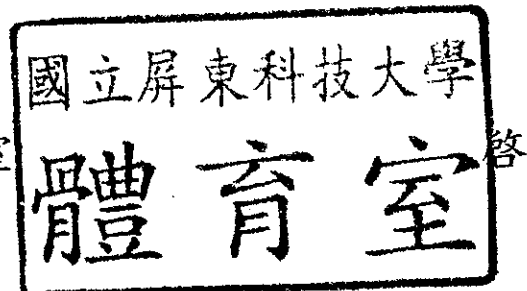 國立屏東科技大學
體育室
啓